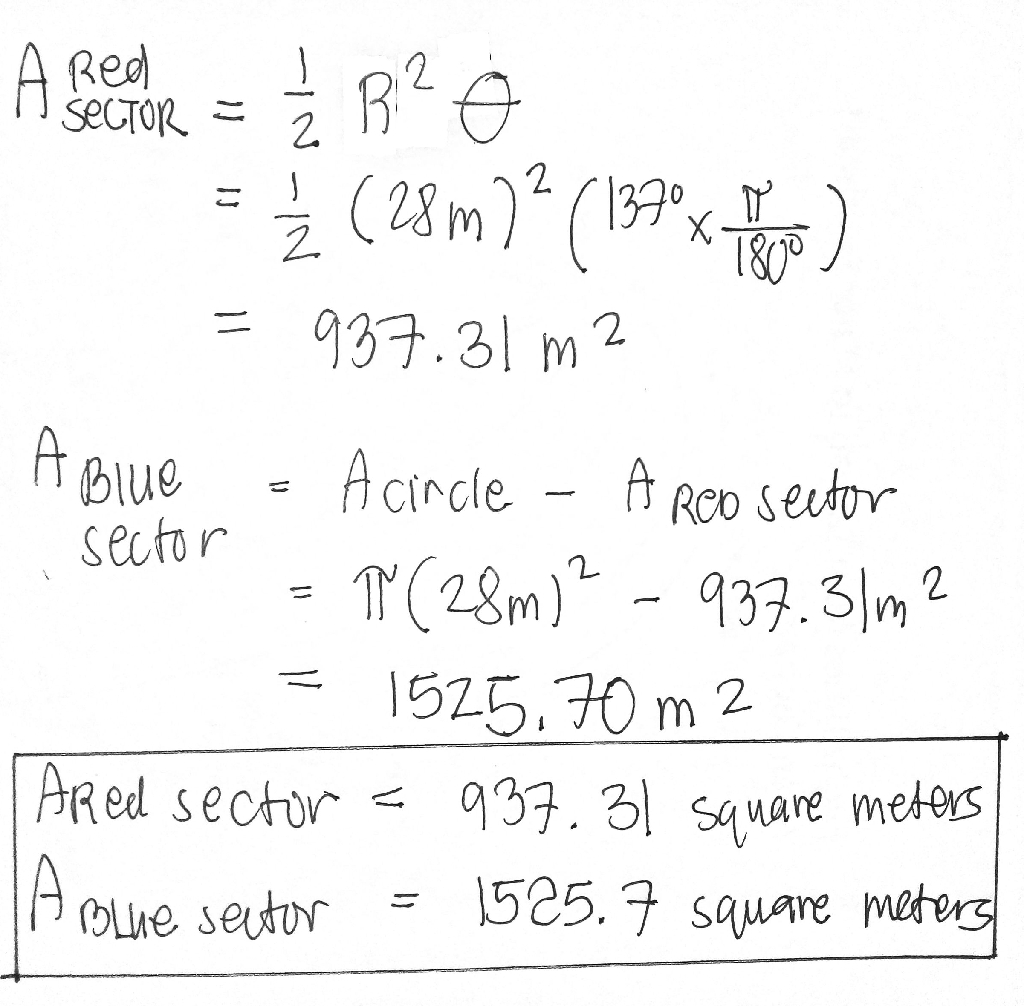 A Red SECTOR = 1/2 R² θ
= 1/2 (28m)² (137° x π/180°)
= 937.31 m²
A Blue sector = A circle - A RED sector
= π(28m)² - 937.31m²
= 1525.70 m²
A Red sector = 937.31 square meters
A Blue sector = 1525.7 square meters